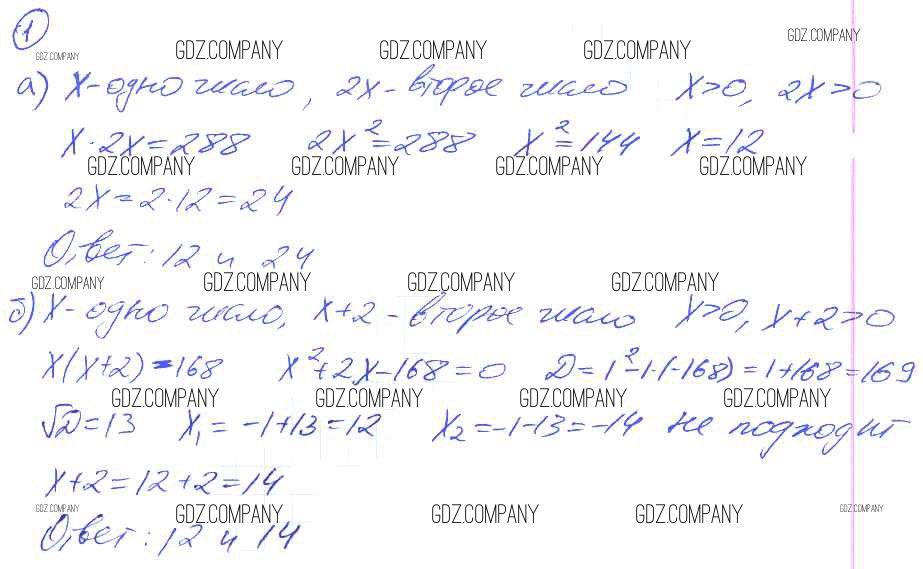 1
GDZ.COMPANY GDZ.COMPANY GDZ.COMPANY GDZ.COMPANY GDZ.COMPANY
а) x - одно число, 2x - второе число x>0, 2x>0
x·2x=288 2x²=288 x²=144 x=12
GDZ.COMPANY GDZ.COMPANY GDZ.COMPANY GDZ.COMPANY
2x=2·12=24
Ответ: 12 и 24
GDZ.COMPANY GDZ.COMPANY GDZ.COMPANY GDZ.COMPANY GDZ.COMPANY
б) x - одно число, x+2 - второе число x>0, x+2>0
x(x+2)=168 x²+2x-168=0 D=1²-1·(-168)=1+168=169
GDZ.COMPANY GDZ.COMPANY GDZ.COMPANY GDZ.COMPANY
√D=13 x₁=-1+13=12 x₂=-1-13=-14 не подходит
x+2=12+2=14
GDZ.COMPANY GDZ.COMPANY GDZ.COMPANY GDZ.COMPANY GDZ.COMPANY
Ответ: 12 и 14